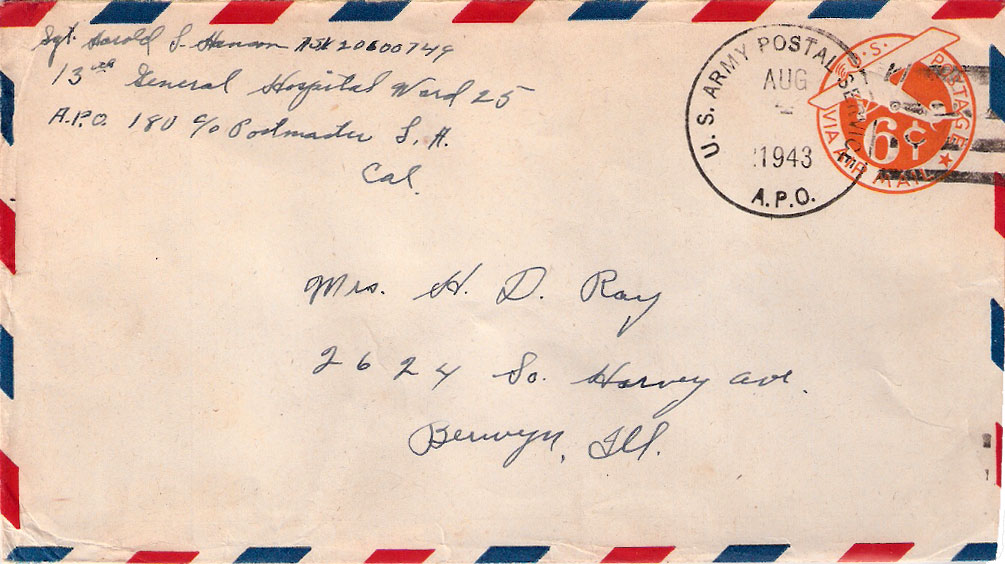 Sgt. Harold S. Hanson ASN 20600749
13th General Hospital Ward 25
A.P.O. 180 c/o Postmaster L.A.
Cal.
U.S. ARMY POSTAL SERVICE
AUG
1943
A.P.O.
U.S. POSTAGE
6¢
VIA AIR MAIL
Mrs. H. D. Ray
2624 So. Harvey Ave.
Berwyn, Ill.